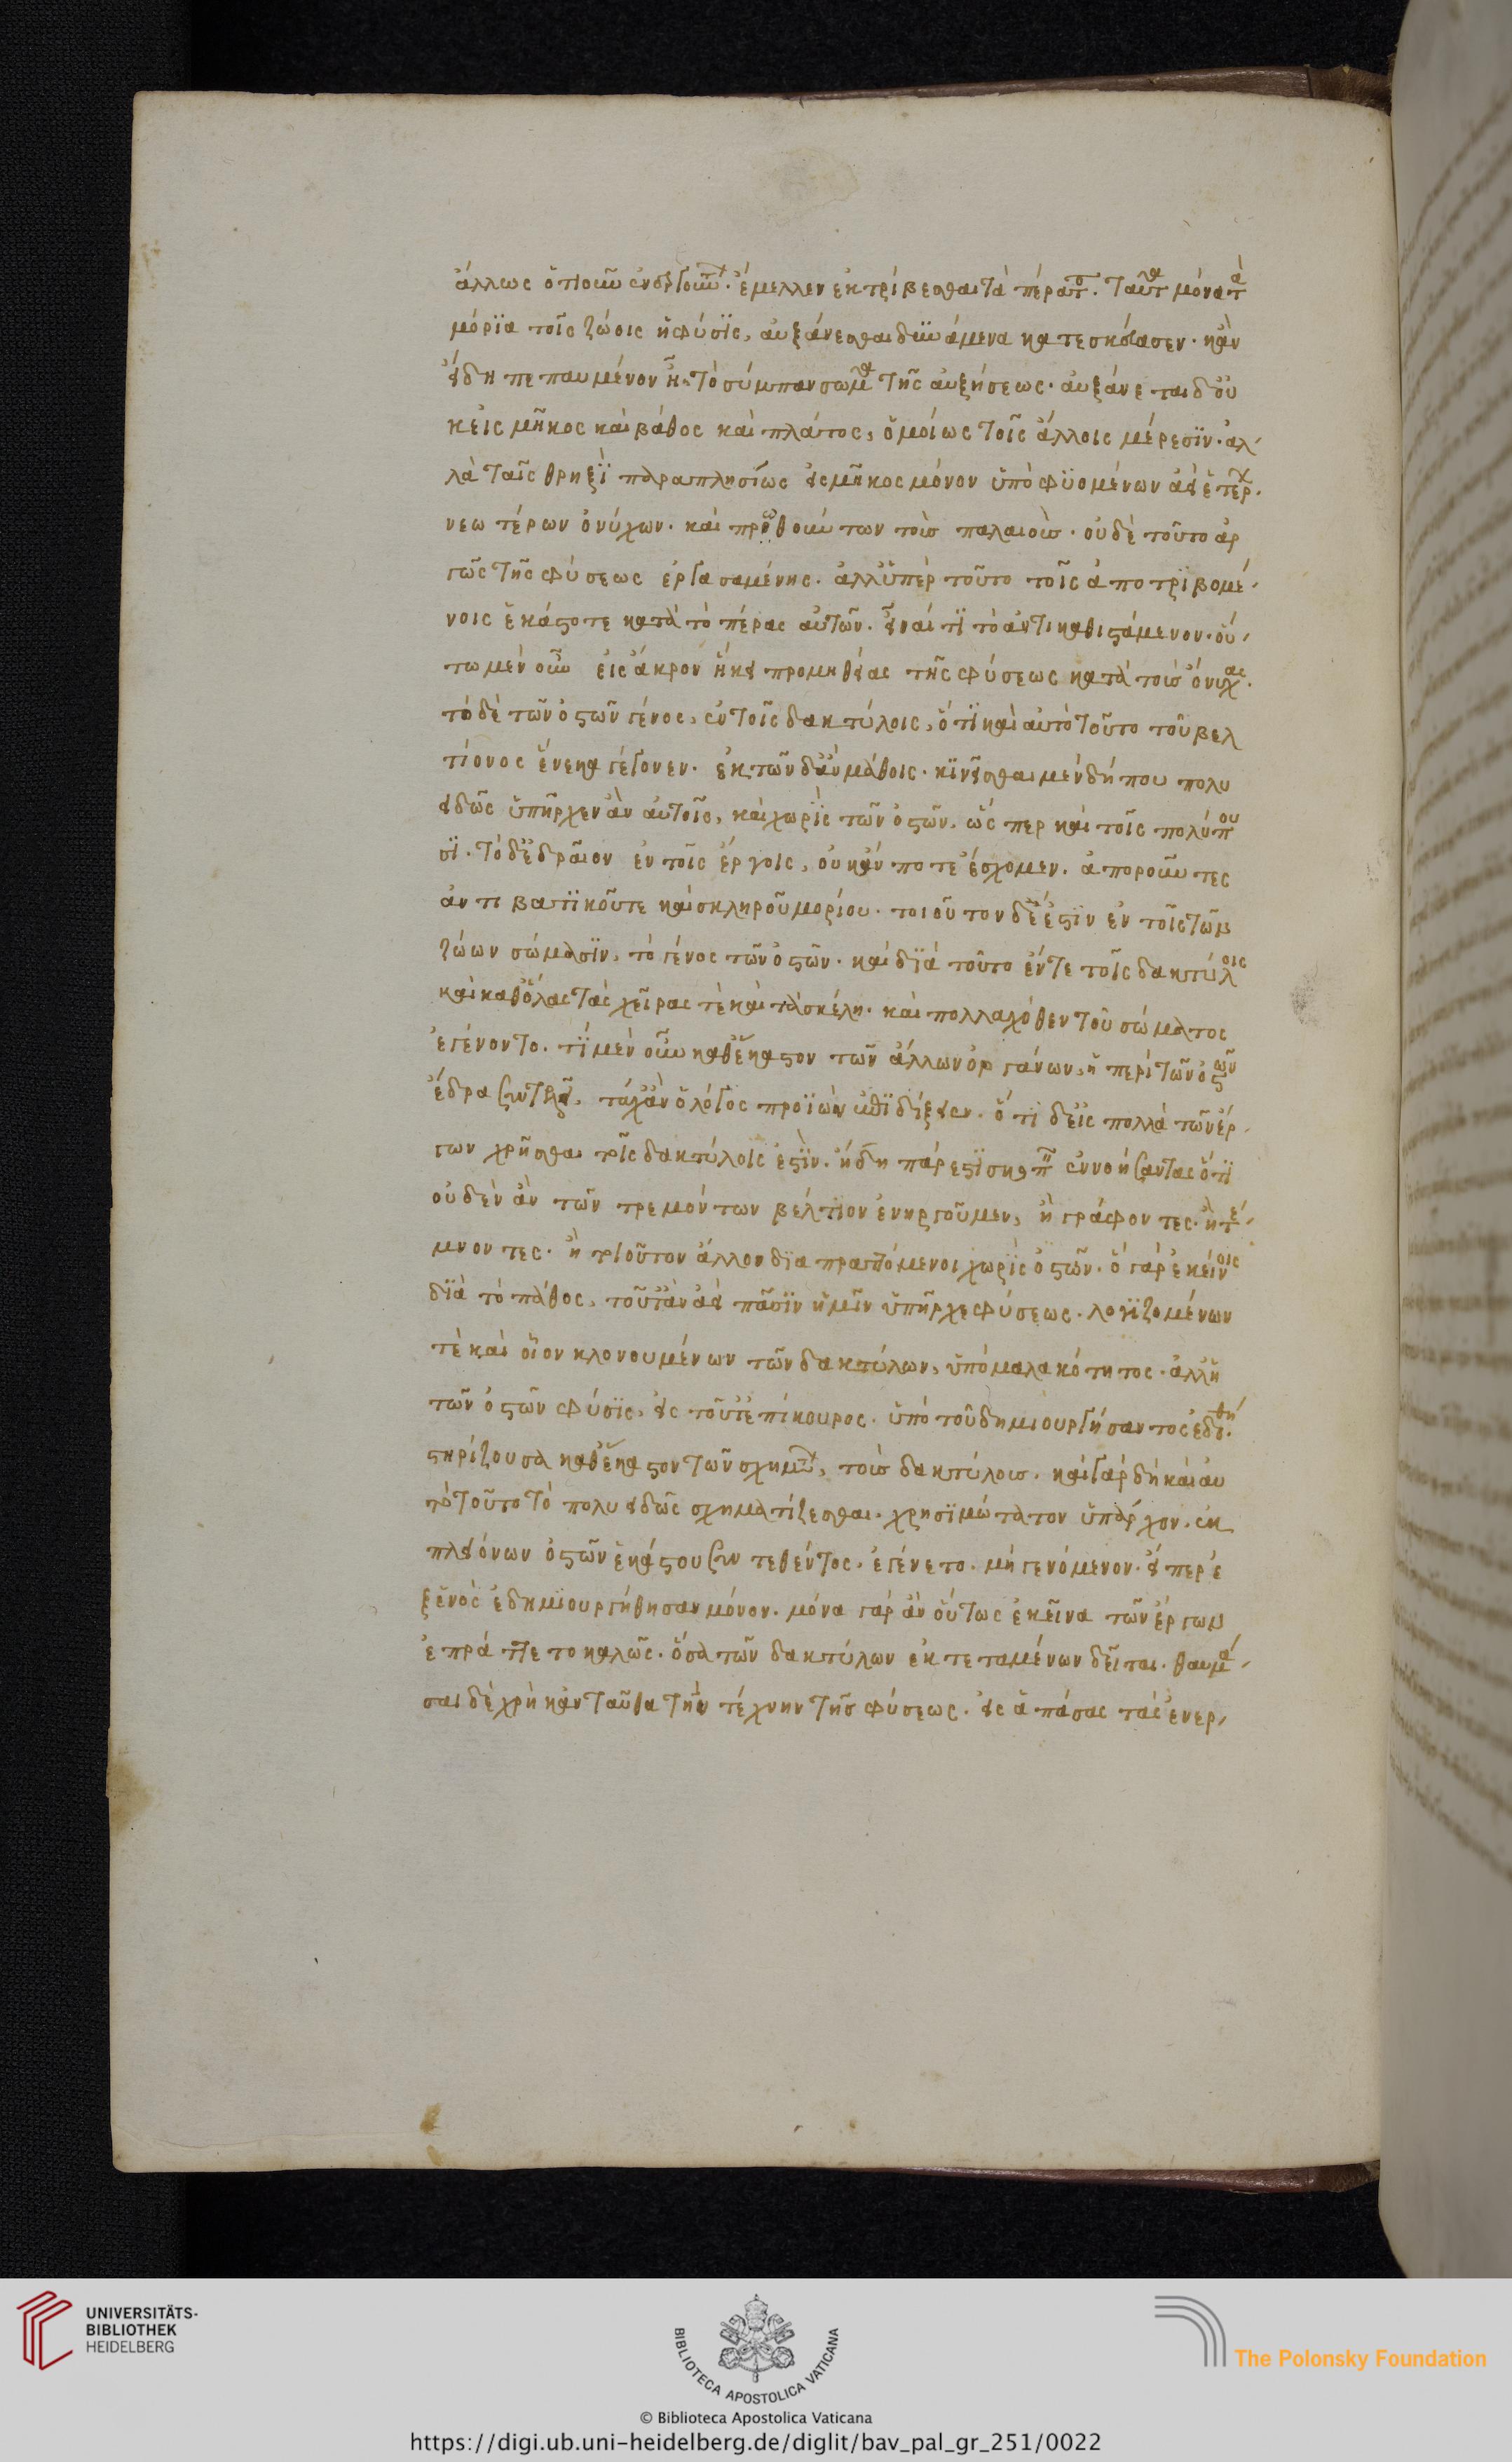 ἄλλως ὁτιοῦν ἐνεργούντων. ἔμελλεν ἐκτρίβεσθαι τὰ πέρατα. ταῦτα μόνα τὰ
μόρϊα τοῖς ζώοις ἡ φύσϊς, αὐξάνεσθαι δυνάμενα κατεσκεύασεν. κἂν
ἤδη πεπαυμένον ᾖ τὸ σύμπαν σῶμα τῆς αὐξήσεως. αὐξάνεται δ' οὐ
κ εἰς μῆκος καὶ βάθος καὶ πλάτος, ὁμοίως τοῖς ἄλλοις μέρεσϊν. ἀλ
λὰ ταῖς θριξῒ παραπλησίως εἰς μῆκος μόνον ὑποφϋομένων ἀεὶ ἑτέρων
νεωτέρων ὀνύχων. καὶ προωθούντων τοὺς παλαιοὺς. οὐδὲ τοῦτο ἀρ
γῶς τῆς φύσεως ἐργασαμένης. ἀλλ' ὑπὲρ τοῦτο τοῖς ἀποτρϊβομέ
νοις ἑκάστοτε κατὰ τὸ πέρας αὐτῶν. εἶναί τϊ τὸ ἀντικαθιστάμενον. οὕ
τω μὲν οὖν εἰς ἄκρον ἥκει προμηθείας τῆς φύσεως κατὰ τοὺς ὄνυχας.
τὸ δὲ τῶν ὀστῶν γένος, ἐν τοῖς δακτύλοις, ὅτϊ καὶ αὐτὸ τοῦτο τοῦ βελ
τίονος ἕνεκα γέγονεν. ἐκ τῶνδ' ἂν μάθοις. κϊνεῖσθαι μὲν δή που πολυ
ειδῶς ὑπῆρχεν ἂν αὐτοῖς, καὶ χωρὶς τῶν ὀστῶν, ὥσπερ καὶ τοῖς πολύπου
σϊ. τὸ δ' ἑδραῖον ἐν τοῖς ἔργοις, οὐκ ἄν ποτε ἔσχομεν. ἀποροῦντες
ἀντιβατϊκοῦ τε καὶ σκληροῦ μορίου. τοιοῦτον δέ ἐστϊν ἐν τοῖς τῶν
ζώων σώμασϊν, τὸ γένος τῶν ὀστῶν. καὶ δϊὰ τοῦτο ἔν τε τοῖς δακτύλοις
καὶ καθ' ὅλας τὰς χεῖρας τὲ καὶ τὰ σκέλη. καὶ πολλαχόθεν τοῦ σώματος
ἐγένοντο. τΐ μὲν οὖν καθ' ἕκαστον τῶν ἄλλων ὀργάνων, ἡ περὶ τῶν ὀστῶν
ἕδρα συντελεῖ, τάχ' ἂν ὁ λόγος προϊὼν ἐπϊδείξειεν. ὅτι δ' εἰς πολλὰ τῶν ἔρ
γων χρῆσθαι τοῖς δακτύλοις ἐστϊν. ἤδη πάρεστϊ σκοπεῖν ἐννοήσαντας ὅτϊ
οὐδὲν ἂν τῶν τρεμόντων βέλτϊον ἐνηργοῦμεν, ἢ γράφοντες. ἢ τέ
μνοντες. ἤ τι τοιοῦτον ἄλλον δϊαπραττόμενοι χωρὶς ὀστῶν. ὃ γὰρ ἐκείνοις
δϊὰ τὸ πάθος, τοῦτ' ἂν ἀεὶ πᾶσϊν ἡμῖν ὑπῆρχε φύσεως. λογϊζομένων
τὲ καὶ οἷον κλονουμένων τῶν δακτύλων, ὑπὸ μαλακότητος. ἀλλ' ἡ
τῶν ὀστῶν φύσϊς, εἰς τοῦτ' ἐπίκουρος. ὑπὸ τοῦ δημιουργήσαντος ἐδόθη.
στηρίζουσα καθ' ἕκαστον τῶν σχημάτων, τοὺς δακτύλους. καὶ γὰρ δὴ καὶ αὐ
τὸ τοῦτο τὸ πολυειδῶς σχηματίζεσθαι. χρησϊμώτατον ὑπάρχον. ἐκ
πλειόνων ὀστῶν ἑκάστου συντεθέντος. ἐγένετο. μὴ γενόμενον. εἴπερ ἐ
ξ ἑνὸς ἐδημϊουργήθησαν μόνον. μόνα γὰρ ἂν οὕτως ἐκεῖνα τῶν ἔργων
ἐπράττετο καλῶς. ὅσα τῶν δακτύλων ἐκτεταμένων δεῖται. θαυμά
σαι δὲ χρὴ κἀνταῦθα τὴν τέχνην τῆς φύσεως. εἰς ἁπάσας τὰς ἐνερ
UNIVERSITÄTS-
BIBLIOTHEK
HEIDELBERG
BIBLIOTECA APOSTOLICA VATICANA
The Polonsky Foundation
© Biblioteca Apostolica Vaticana
https://digi.ub.uni-heidelberg.de/diglit/bav_pal_gr_251/0022